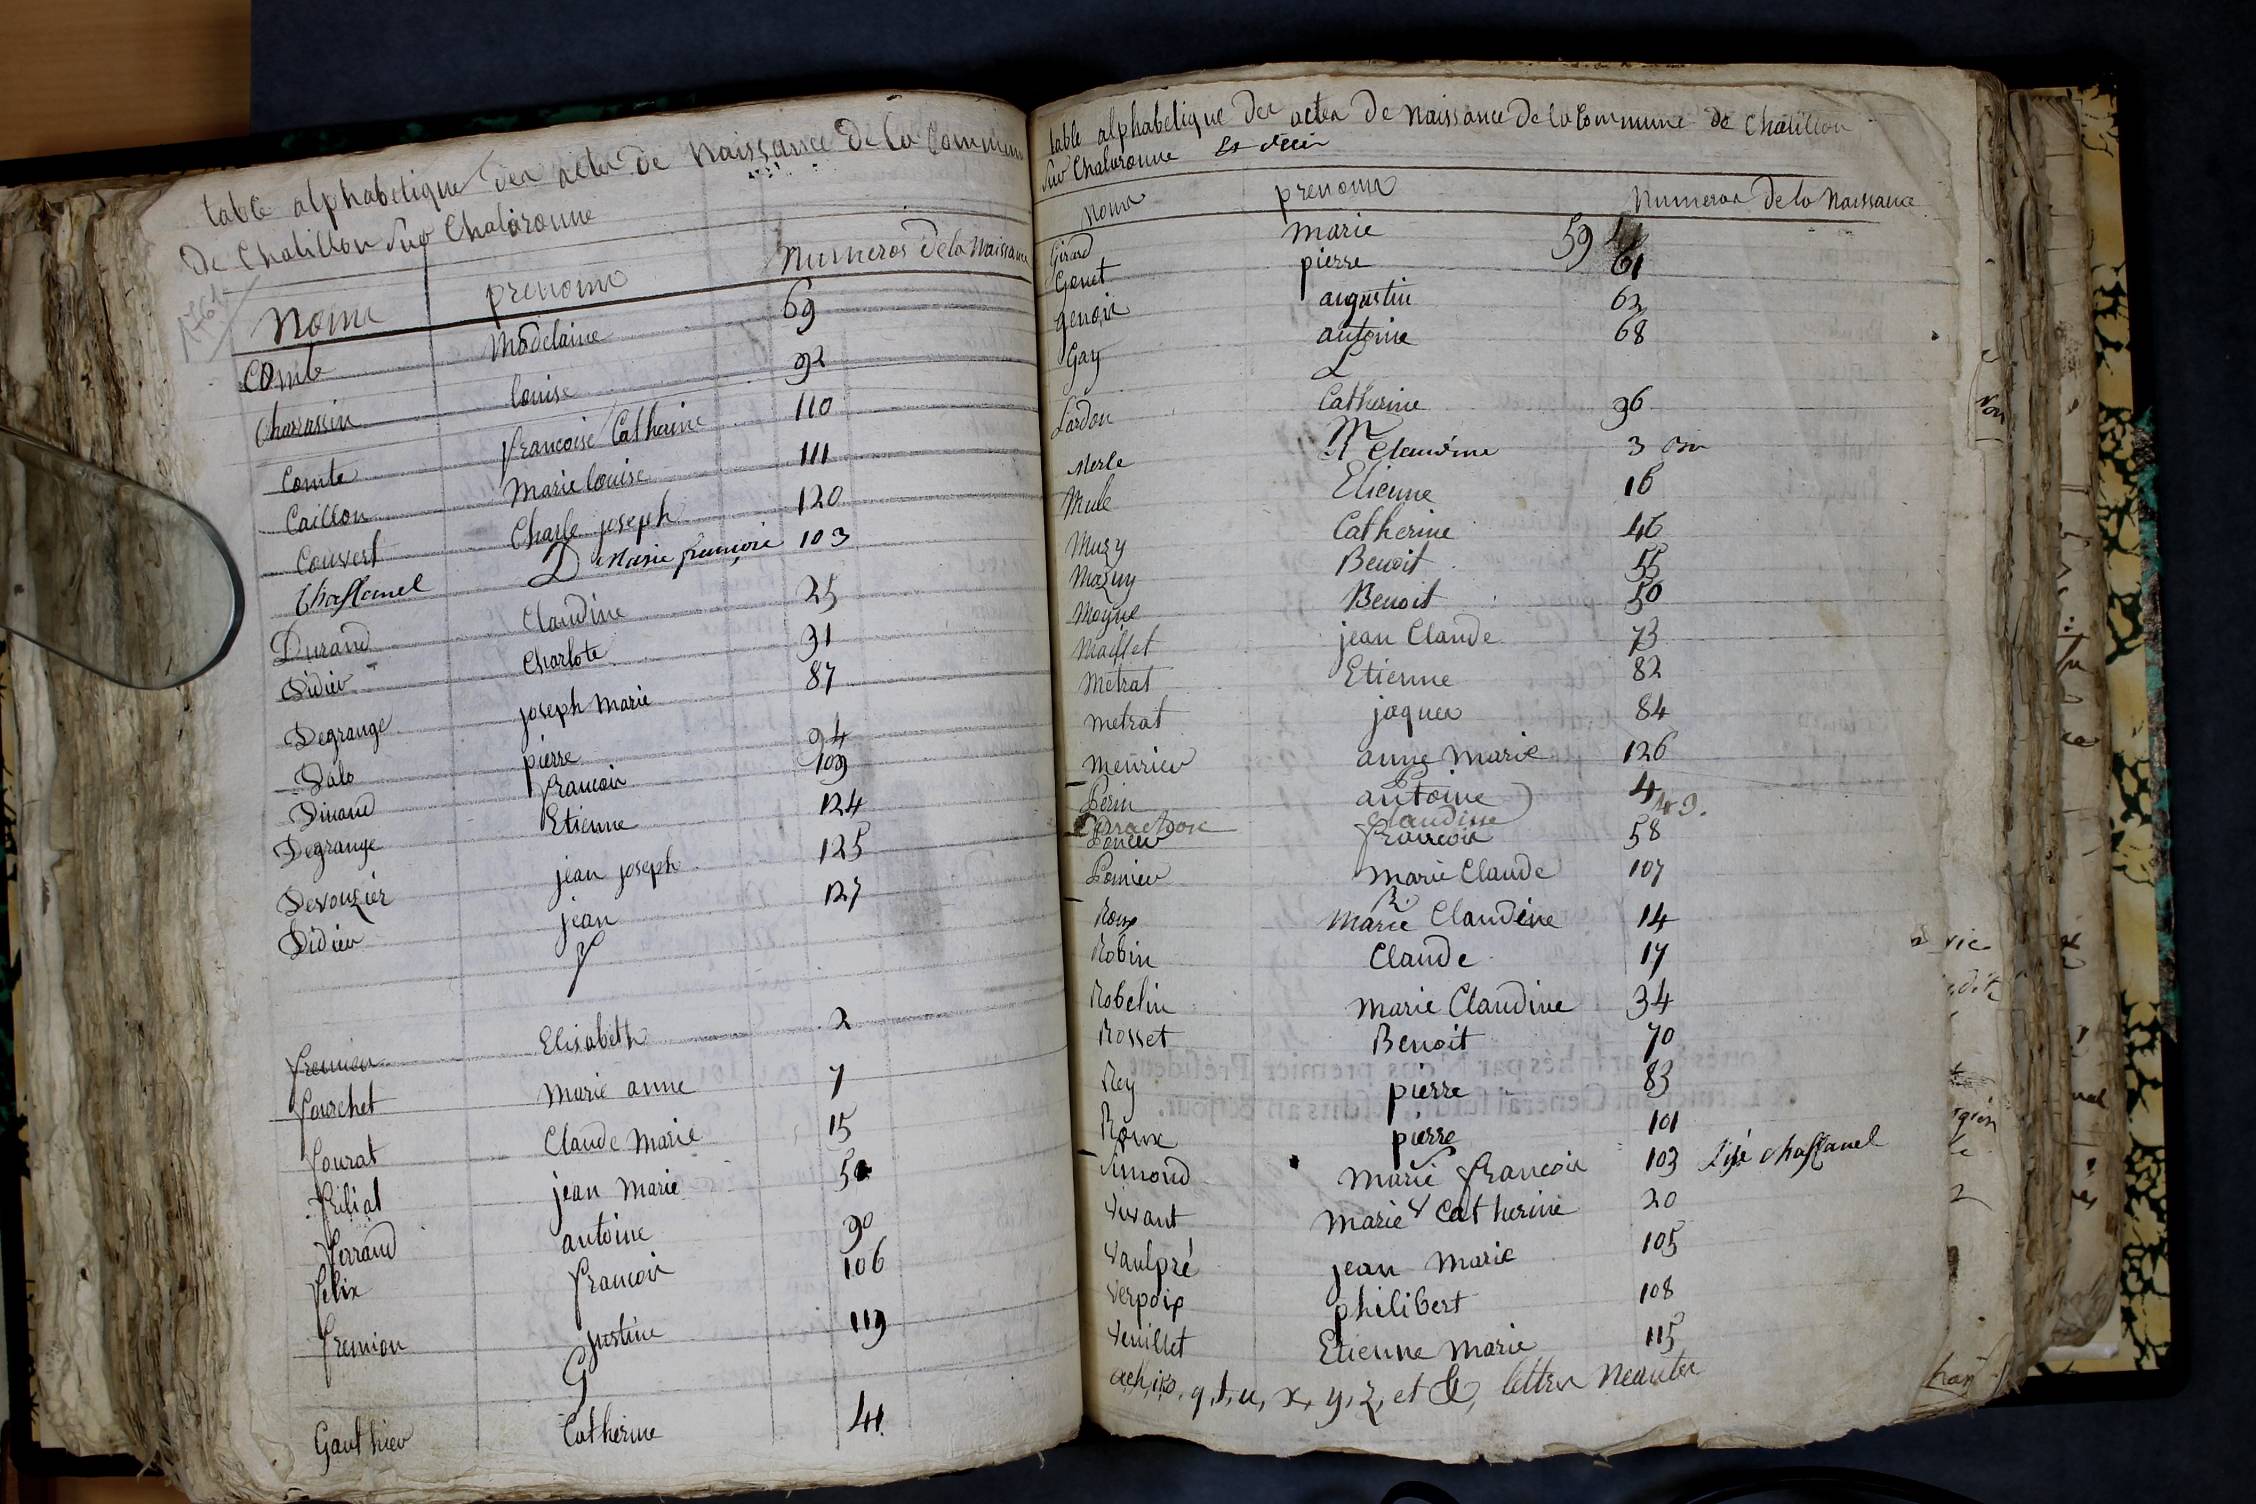 table alphabetique des actes de Naissance de la Commune
de Chatillon sur Chalaronne
1761
Noms prenoms Numeros de la Naissance
Comte Madelaine 69
Charrassin louise 92
Comte francoise Catherine 110
Caillon Marie louise 111
Couvert Charle joseph 120
Chastanel Marie françoise 103
D
Durand Claudine 25
Didier Charlote 31
Degrange joseph Marie 87
Dalo pierre 94
Dinand francois 109
Degrange Etienne 124
Devouzier jean joseph 125
Didier jean 127
f
fremion Elisabeth 2
fourchet Marie anne 7
fourat Claude Marie 15
filiat jean Marie 5
ferrand antoine 90
felix francois 106
fremion justine 119
G
Gauthier Catherine 41
table alphabetique des actes de Naissance de la Commune de Chatillon
sur Chalaronne
noms prenoms Numeros de la Naissance
Girard marie 59
Gonet pierre 61
genoix augustin 62
Gay antoine 68
L
Lardon Catherine 96
M
Merle Claudine 3
Mule Etienne 16
Muzy Catherine 46
Mazuy Benoit 55
Moyne Benoit 50
Maillet jean Claude 73
Metrat Etienne 82
metrat jaques 84
meunier anne Marie 126
P
Perin antoine 4
claudine 49.
Poncer francois 58
Pomier Marie Claude 107
R
Roux Marie Claudine 14
Robin Claude 17
Robelin Marie Claudine 34
Rosset Benoit 70
Rey pierre 83
Roux pierre 101
Simond Marie francois 103 Chastanel
V
Vivant Marie Catherine 20
Vaulpré jean Marie 105
Verpoix philibert 108
Veuillet Etienne Marie 115
q, t, u, x, y, z, et &, lettres Neantes